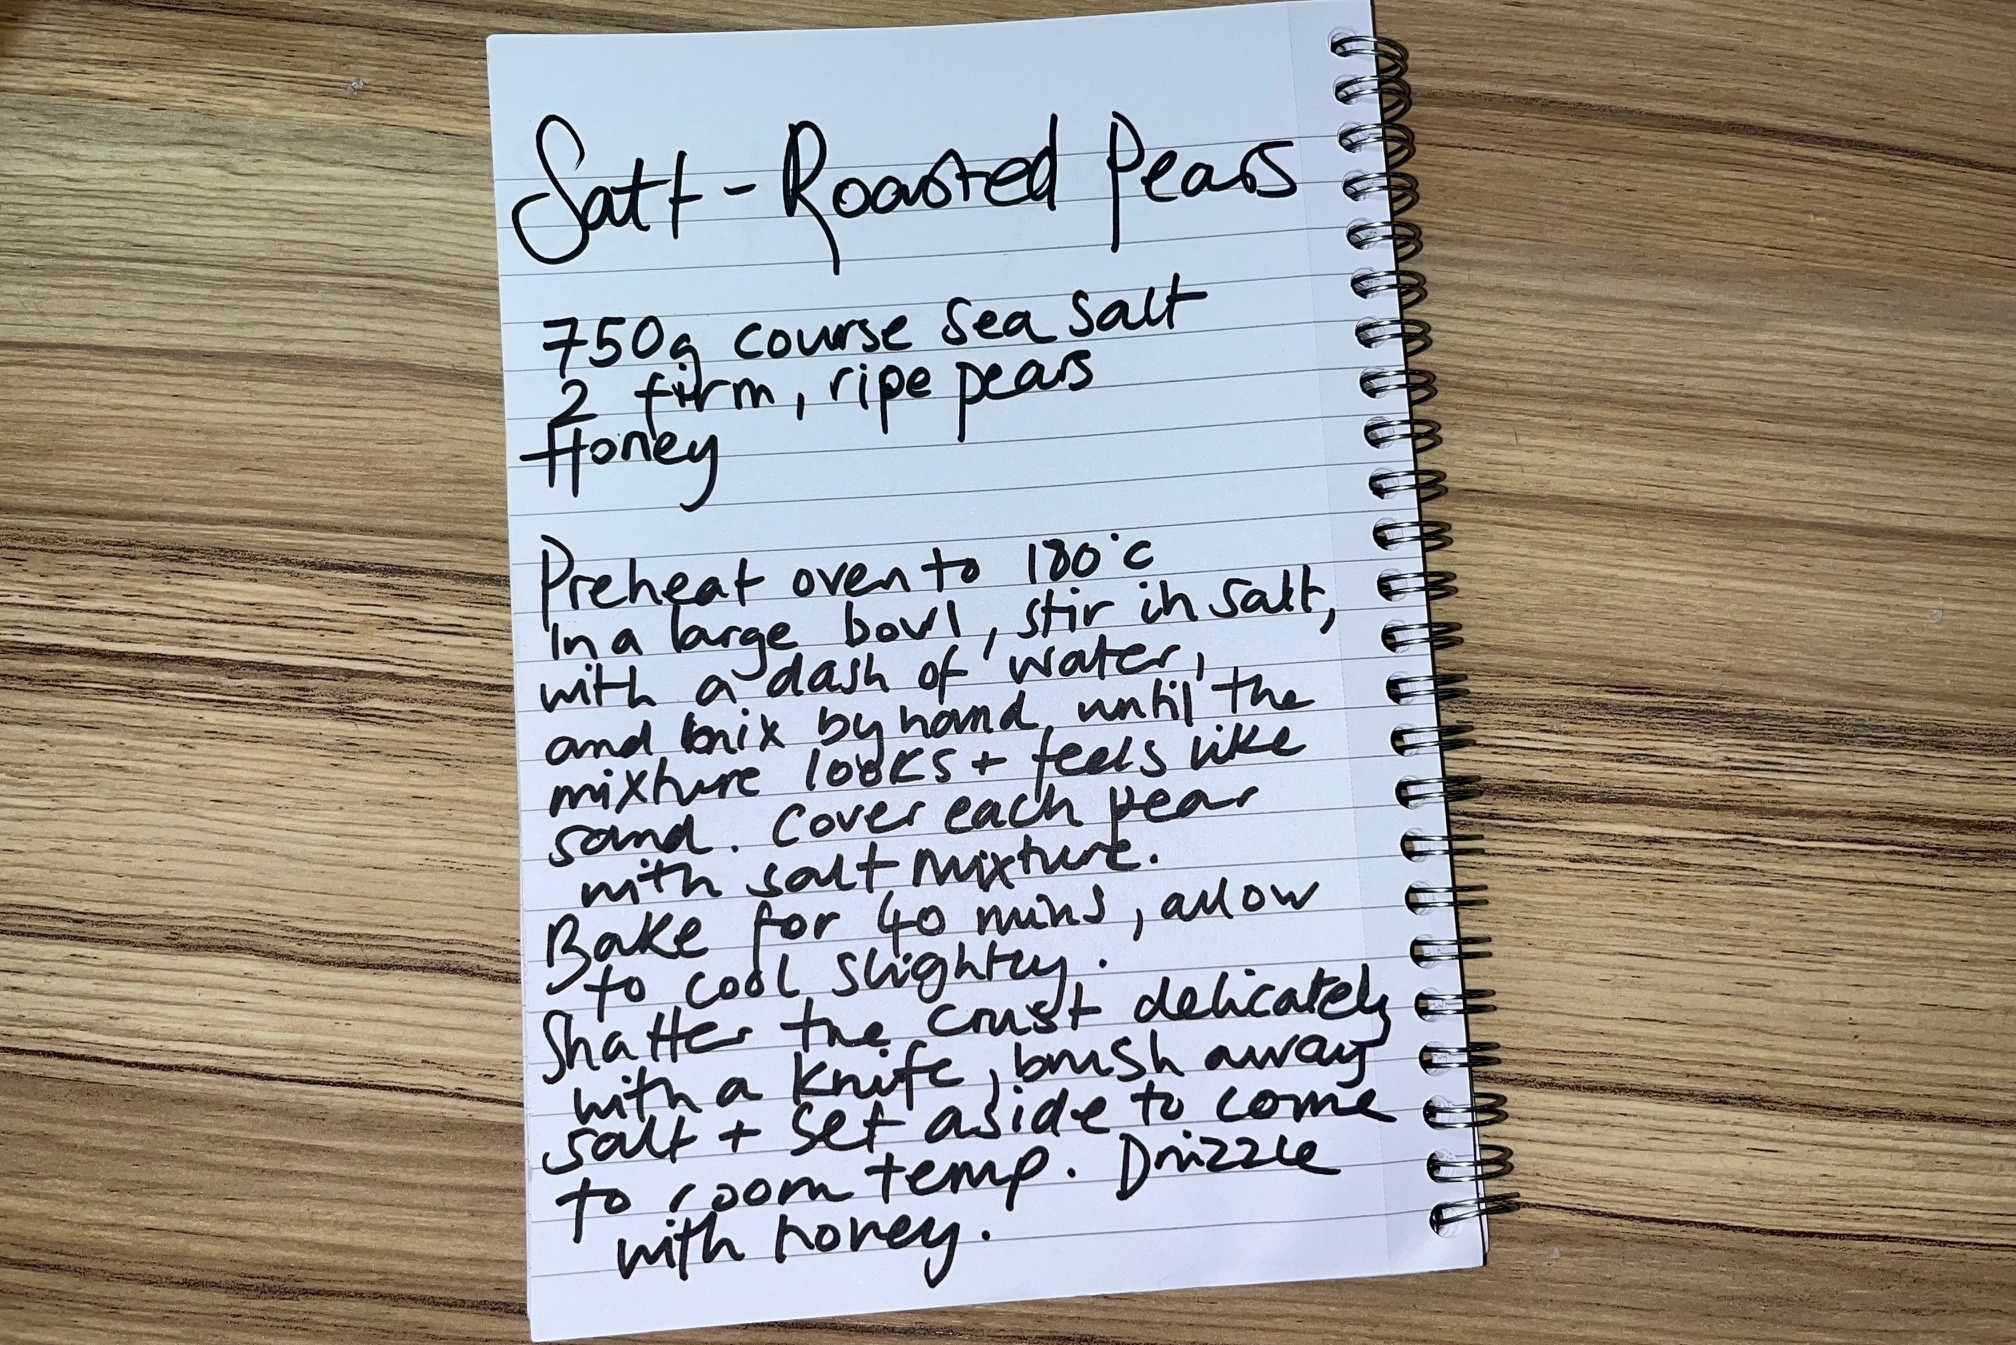 Salt-Roasted Pears
750g course sea salt
2 firm, ripe pears
Honey
Preheat oven to 180°c
In a large bowl, stir in salt,
with a dash of water,
and mix by hand until the
mixture looks + feels like
sand. Cover each pear
with salt mixture.
Bake for 40 mins, allow
to cool slightly.
Shatter the crust delicately
with a knife, brush away
salt + set aside to come
to room temp. Drizzle
with honey.